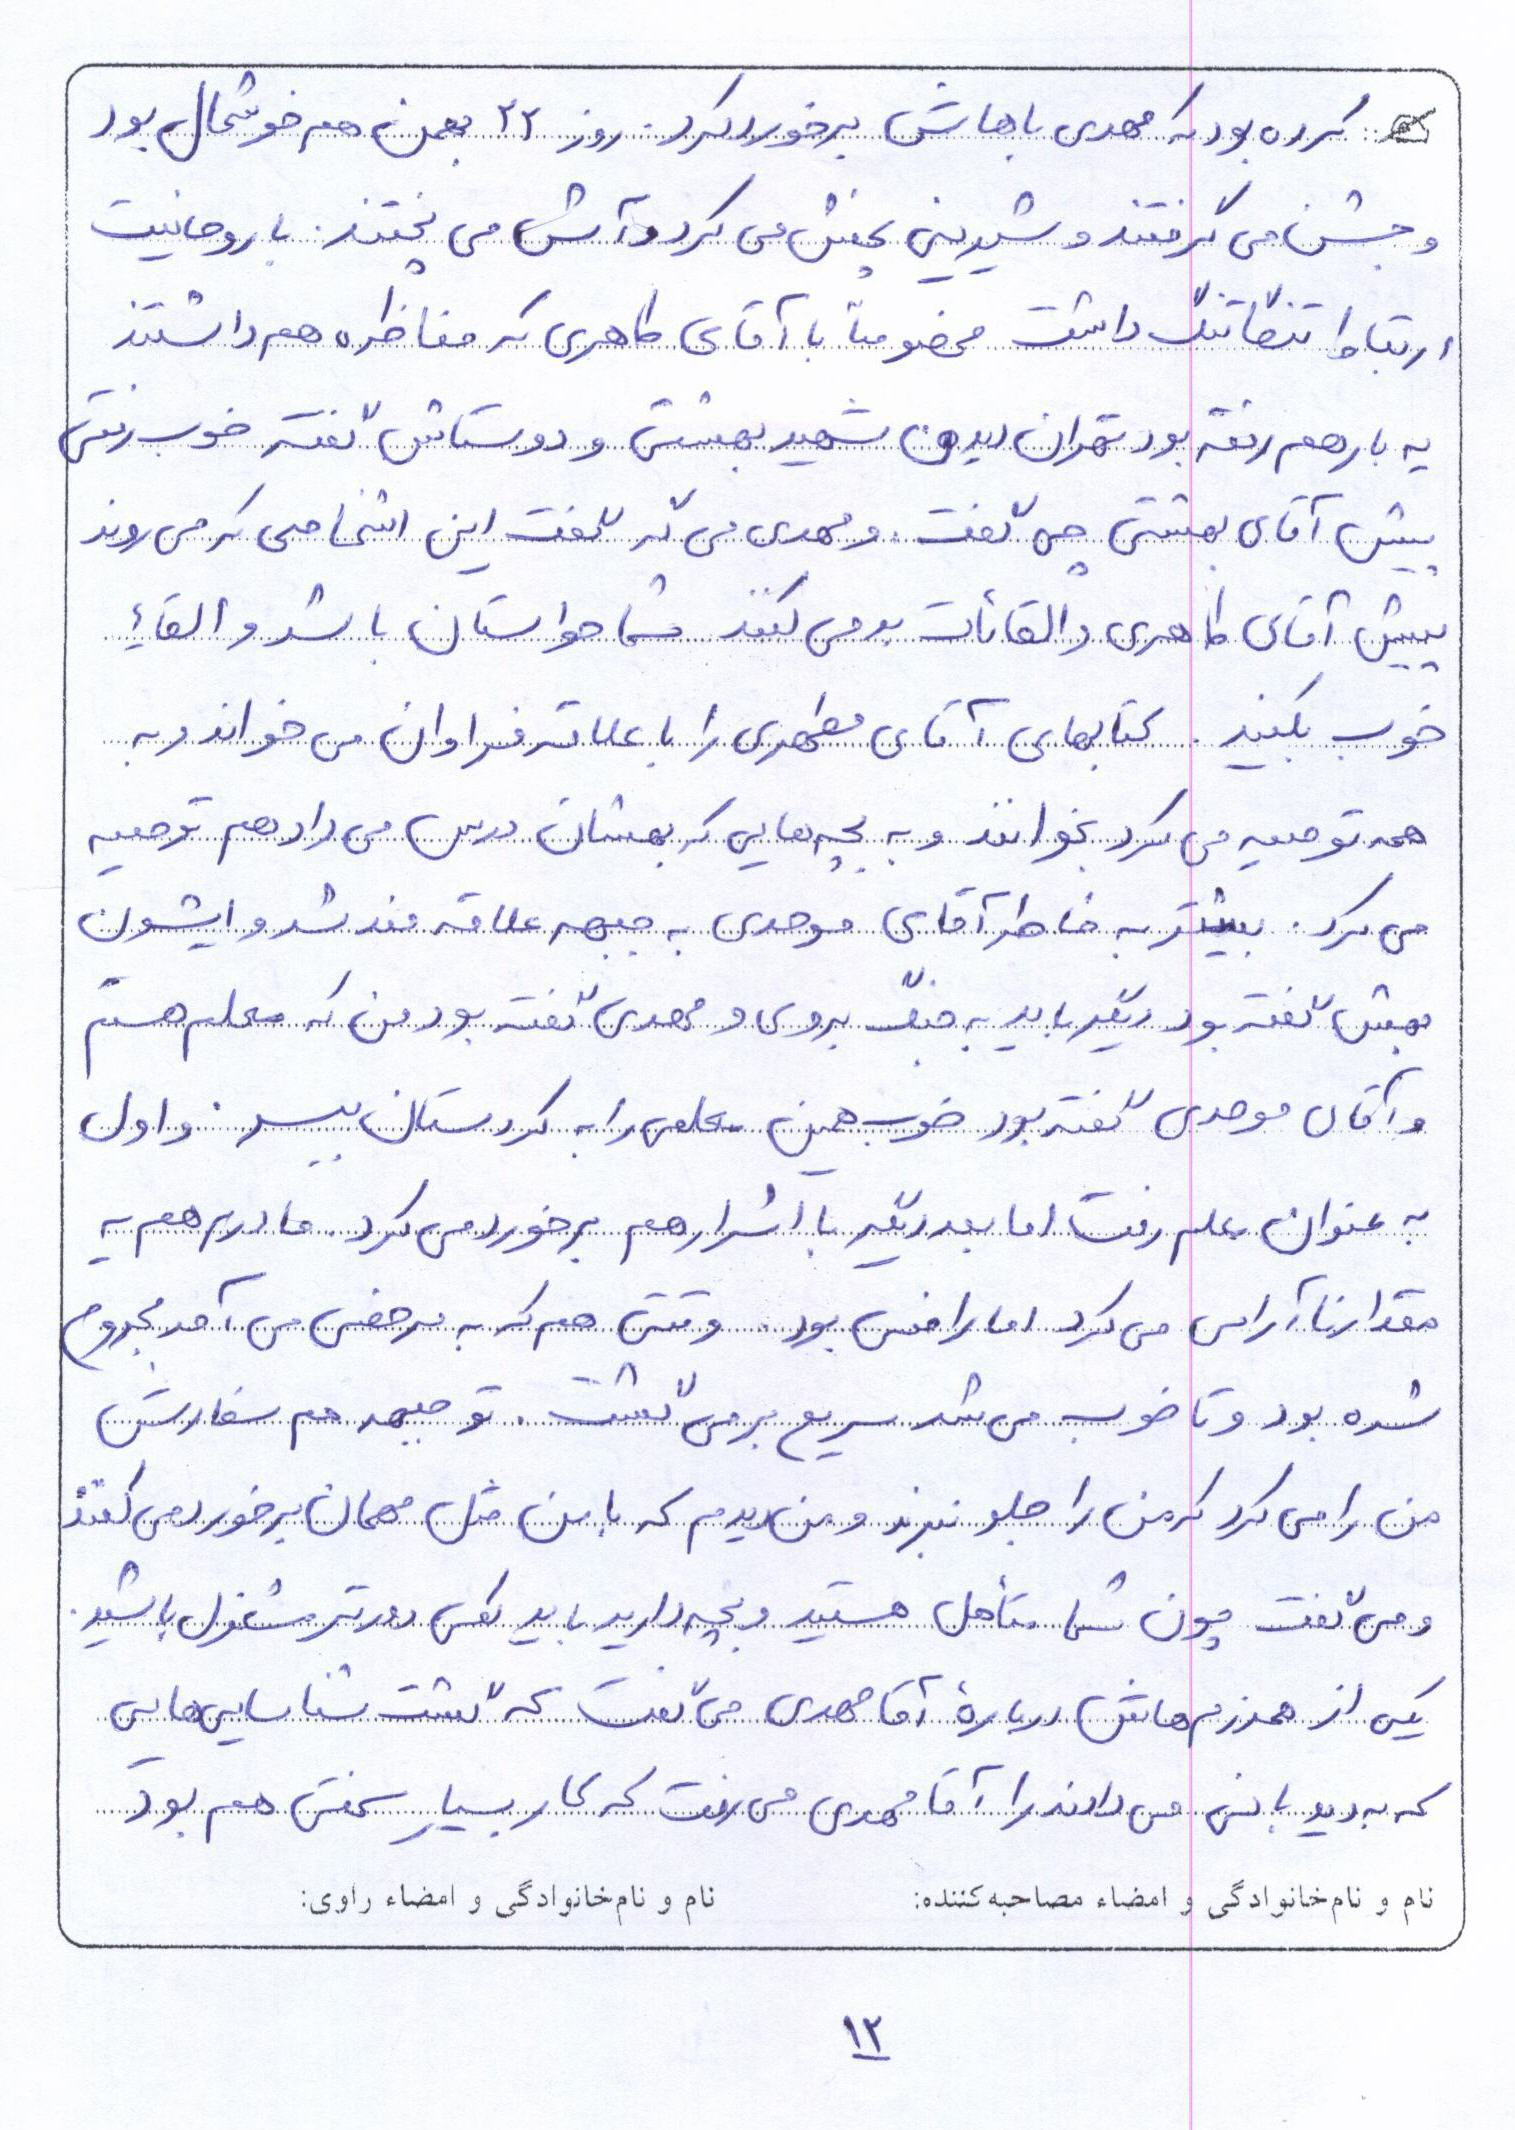 کرده بود که مهدی باهاش برخورد کرد. روز ۲۲ بهمن هم خوشحال بود
و جشن می گرفتند و شیرینی پخش می کرد و آش می پختند. با روحانیت
ارتباط تنگاتنگ داشت مخصوصاً با آقای طاهری که مناظره هم داشتند
یه بار هم رفته بود تهران دیدن شهید بهشتی و دوستاش گفته خوب رفتی
پیش آقای بهشتی چی گفت. و مهدی می گه گفت این اشخاصی که می روند
پیش آقای طاهری و القائات بد می کنند شما حواستان باشد و القاء
خوب بکنید. کتابهای آقای مطهری را با علاقه فراوان می خواند و به
همه توصیه می کرد بخوانند و به بچه‌هایی که بهشان درس می داد هم توصیه
می کرد. بیشتر به خاطر آقای موحدی به جبهه علاقه مند شد و ایشون
بهش گفته بود دیگر باید به جنگ بروی و مهدی گفته بود من که معلم هستم
و آقای موحدی گفته بود خوب همین معلمی را به کردستان ببر. و اول
به عنوان معلم رفت اما بعد دیگر با اشرار هم برخورد می کرد. مادرم هم یه
مقدار ناآرامی می کرد اما راضی بود. وقتی هم که به مرخصی می آمد مجروح
شده بود و تا خوب می شد سریع بر می گشت. تو جبهه هم سفارش
من را می کرد که من را جلو نبرند و من دیدم که با من مثل مهمان برخورد می کنند
و می گفت چون شما متأهل هستید و بچه دارید باید کمی دورتر مشغول باشید.
یکی از همرزم‌هاش دربارهٔ آقا مهدی می گفت که گشت شناسایی‌هایی
که به دیده بانی می دادند را آقا مهدی می رفت که کار بسیار سختی هم بود
نام و نام‌خانوادگی و امضاء مصاحبه‌کننده: نام و نام‌خانوادگی و امضاء راوی:
۱۲